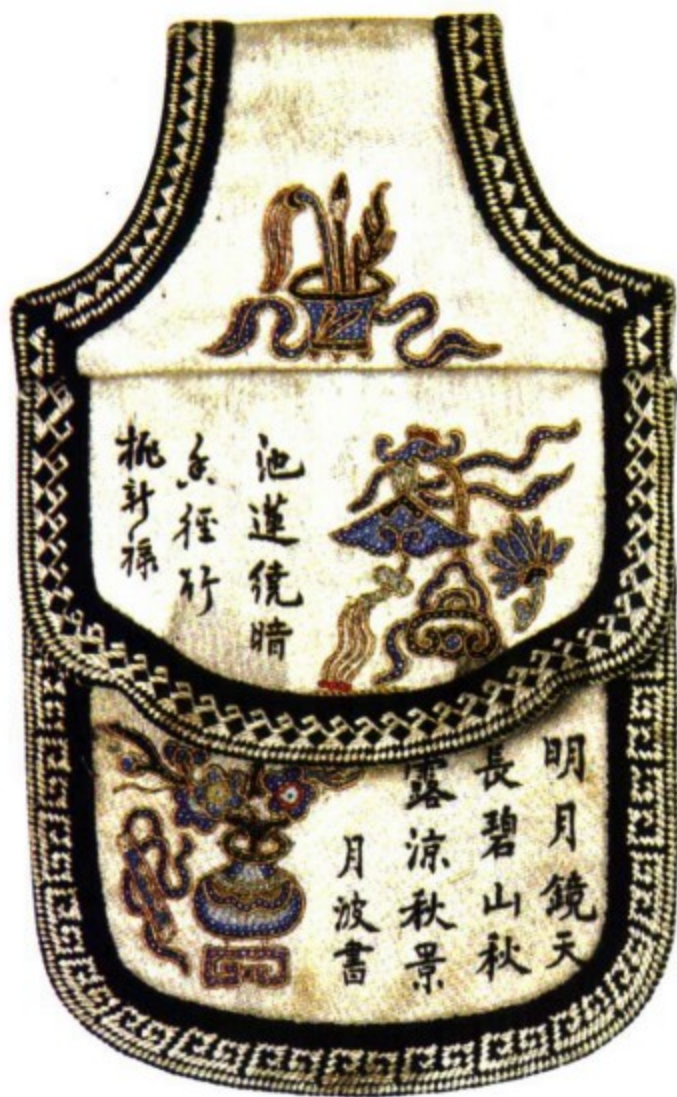 池蓮繞暗
香徑行
挑新様
明月鏡天
長碧山秋
露涼秋景
月波書